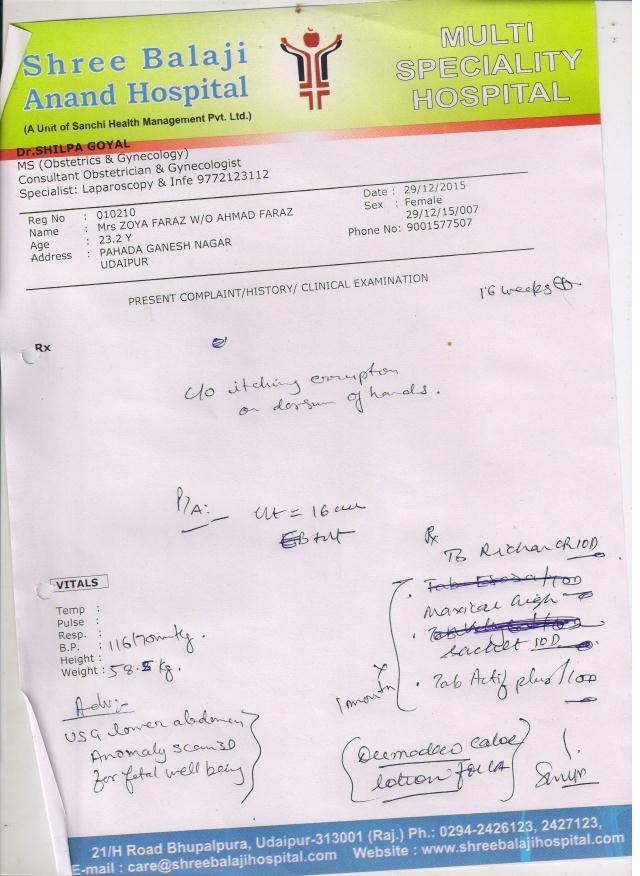 Shree Balaji
Anand Hospital
(A Unit of Sanchi Health Management Pvt. Ltd.)
MULTI
SPECIALITY
HOSPITAL
Dr.SHILPA GOYAL
MS (Obstetrics & Gynecology)
Consultant Obstetrician & Gynecologist
Specialist: Laparoscopy & Infe 9772123112
Reg No : 010210
Name : Mrs ZOYA FARAZ W/O AHMAD FARAZ
Age : 23.2 Y
Address : PAHADA GANESH NAGAR
UDAIPUR
Date : 29/12/2015
Sex : Female
29/12/15/007
Phone No: 9001577507
PRESENT COMPLAINT/HISTORY/ CLINICAL EXAMINATION
16 weeks
Rx
c/o itching erruption
on dorsum of hands.
P/A: ut = 16
Rx
Richar CR 10D
Maxical high
sachet 10D
Tab Actif plus/10D
x 1month
VITALS
Temp :
Pulse :
Resp. :
B.P. : 116/70mmhg.
Height :
Weight : 58.5 kg.
Adv:-
USG lower abdomen
Anomaly scan 3D
for fetal well being
lotion for LA
21/H Road Bhupalpura, Udaipur-313001 (Raj.) Ph.: 0294-2426123, 2427123,
E-mail : care@shreebalajihospital.com Website : www.shreebalajihospital.com